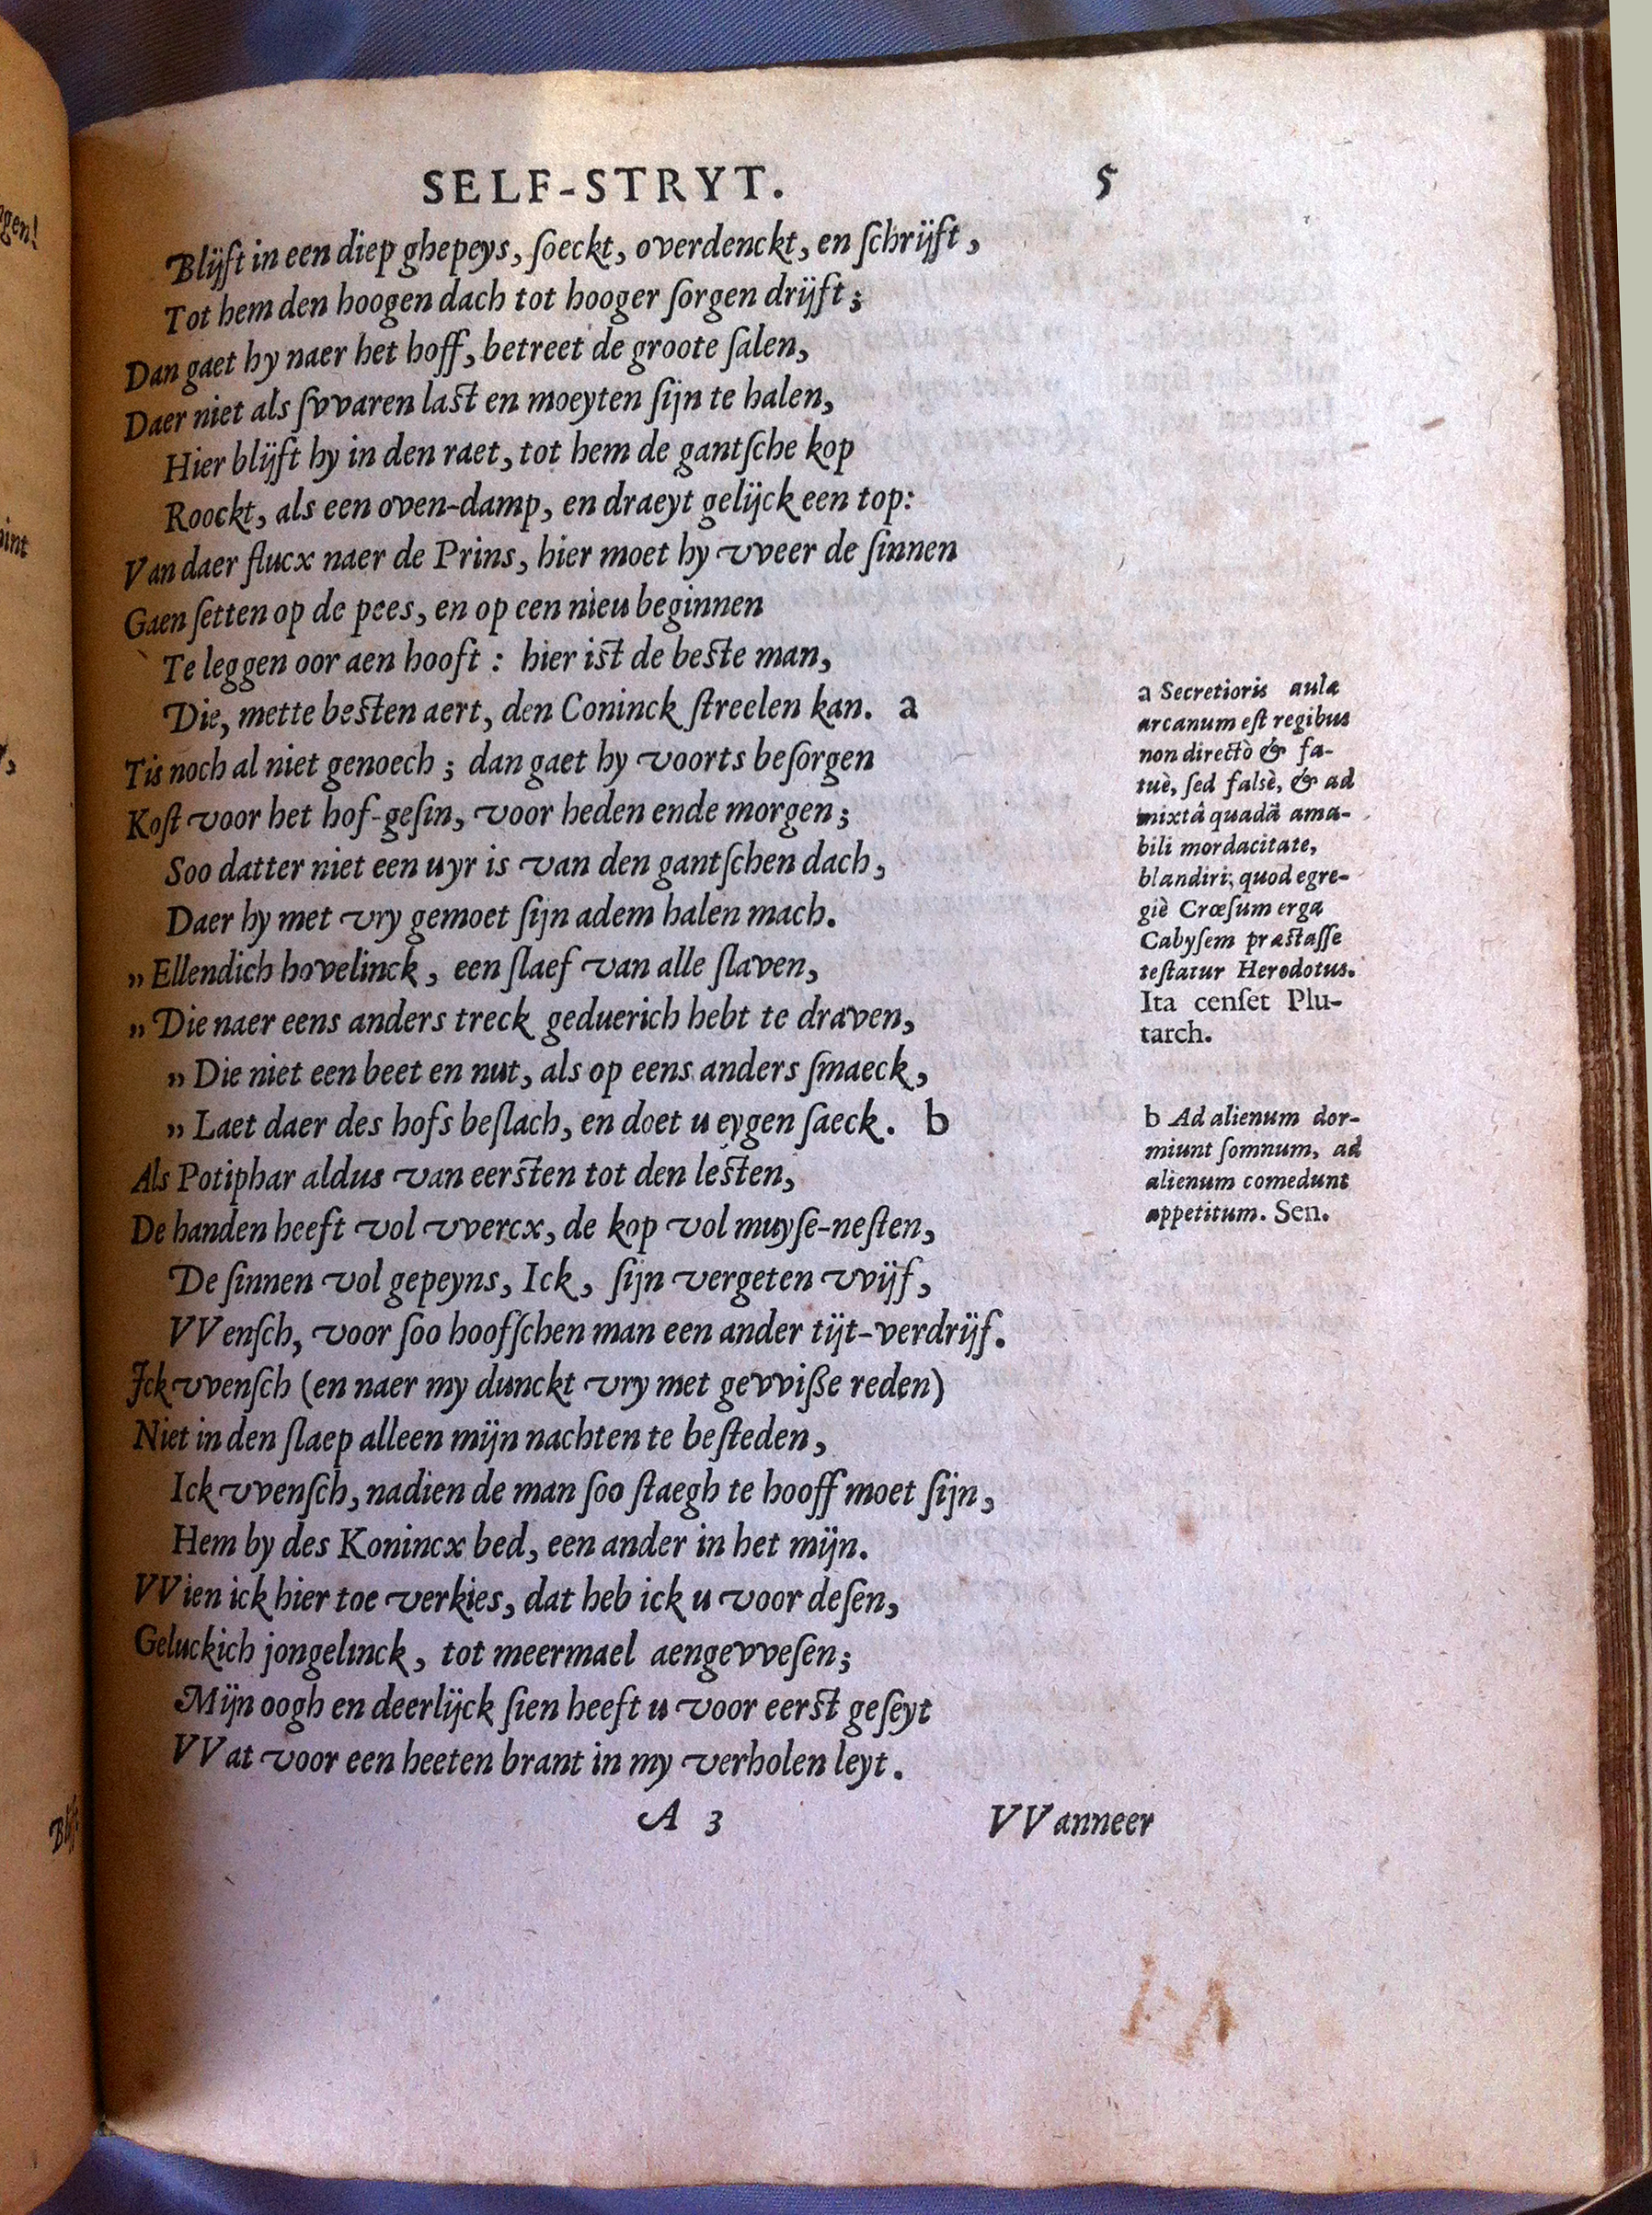 SELF-STRYT. 5
Blijft in een diep ghepeys, ſoeckt, overdenckt, en ſchrijft,
Tot hem den hoogen dach tot hooger ſorgen drijft;
Dan gaet hy naer het hoff, betreet de groote ſalen,
Daer niet als ſvvaren laſt en moeyten ſijn te halen,
Hier blijft hy in den raet, tot hem de gantſche kop
Roockt, als een oven-damp, en draeyt gelijck een top:
Van daer flucx naer de Prins, hier moet hy vveer de ſinnen
Gaen ſetten op de pees, en op een nieu beginnen
Te leggen oor aen hooft : hier iſt de beſte man,
Die, mette beſten aert, den Coninck ſtreelen kan. a
Tis noch al niet genoech ; dan gaet hy voorts beſorgen
Koſt voor het hof-geſin, voor heden ende morgen;
Soo datter niet een uyr is van den gantſchen dach,
Daer hy met vry gemoet ſijn adem halen mach.
„ Ellendich hovelinck, een ſlaef van alle ſlaven,
„ Die naer eens anders treck geduerich hebt te draven,
„ Die niet een beet en nut, als op eens anders ſmaeck,
„ Laet daer des hofs beſlach, en doet u eygen ſaeck. b
Als Potiphar aldus van eerſten tot den leſten,
De handen heeft vol vvercx, de kop vol muyſe-neſten,
De ſinnen vol gepeyns, Ick, ſijn vergeten vvijf,
VVenſch, voor ſoo hoofſchen man een ander tijt-verdrijf.
Ick vvenſch (en naer my dunckt vry met gevviße reden)
Niet in den ſlaep alleen mijn nachten te beſteden,
Ick vvenſch, nadien de man ſoo ſtaegh te hooff moet ſijn,
Hem by des Konincx bed, een ander in het mijn.
VVien ick hier toe verkies, dat heb ick u voor deſen,
Geluckich jongelinck, tot meermael aengevveſen;
Mijn oogh en deerlijck ſien heeft u voor eerſt geſeyt
VVat voor een heeten brant in my verholen leyt.
A 3 VVanneer
a Secretioris aulæ
arcanum eſt regibus
non directò & fa-
tuè, ſed falsè, & ad
mixtâ quadã ama-
bili mordacitate,
blandiri; quod egre-
giè Crœſum erga
Cabyſem præſtaſſe
teſtatur Herodotus.
Ita cenſet Plu-
tarch.
b Ad alienum dor-
miunt ſomnum, ad
alienum comedunt
appetitum. Sen.
ngen!